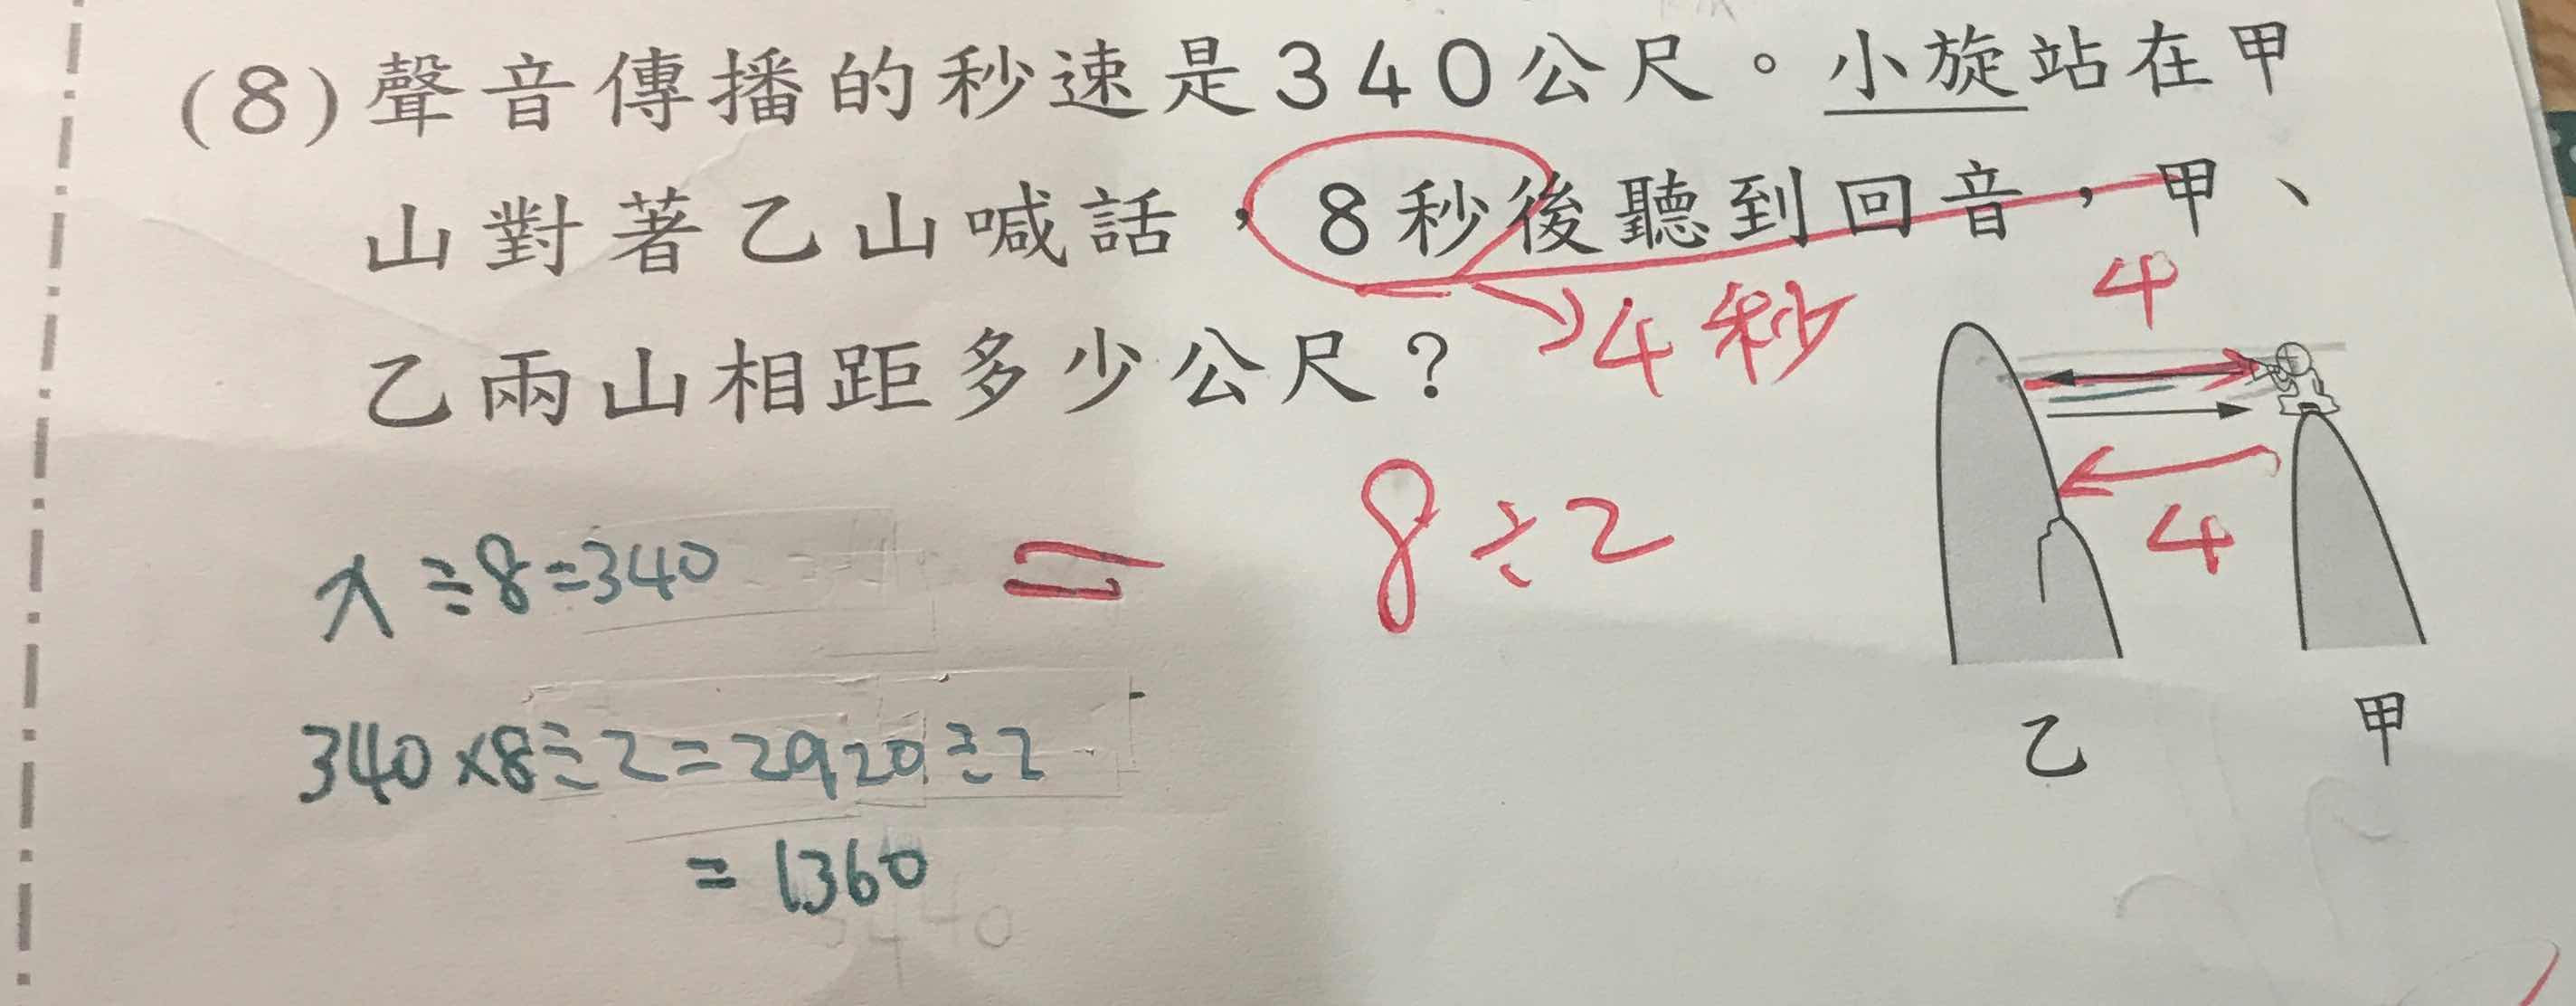 (8)聲音傳播的秒速是340公尺。小旋站在甲
山對著乙山喊話，8秒後聽到回音，甲、
乙兩山相距多少公尺？
4秒
4
4
x÷8=340
= 8÷2
340×8÷2=2920÷2
=1360
乙 甲